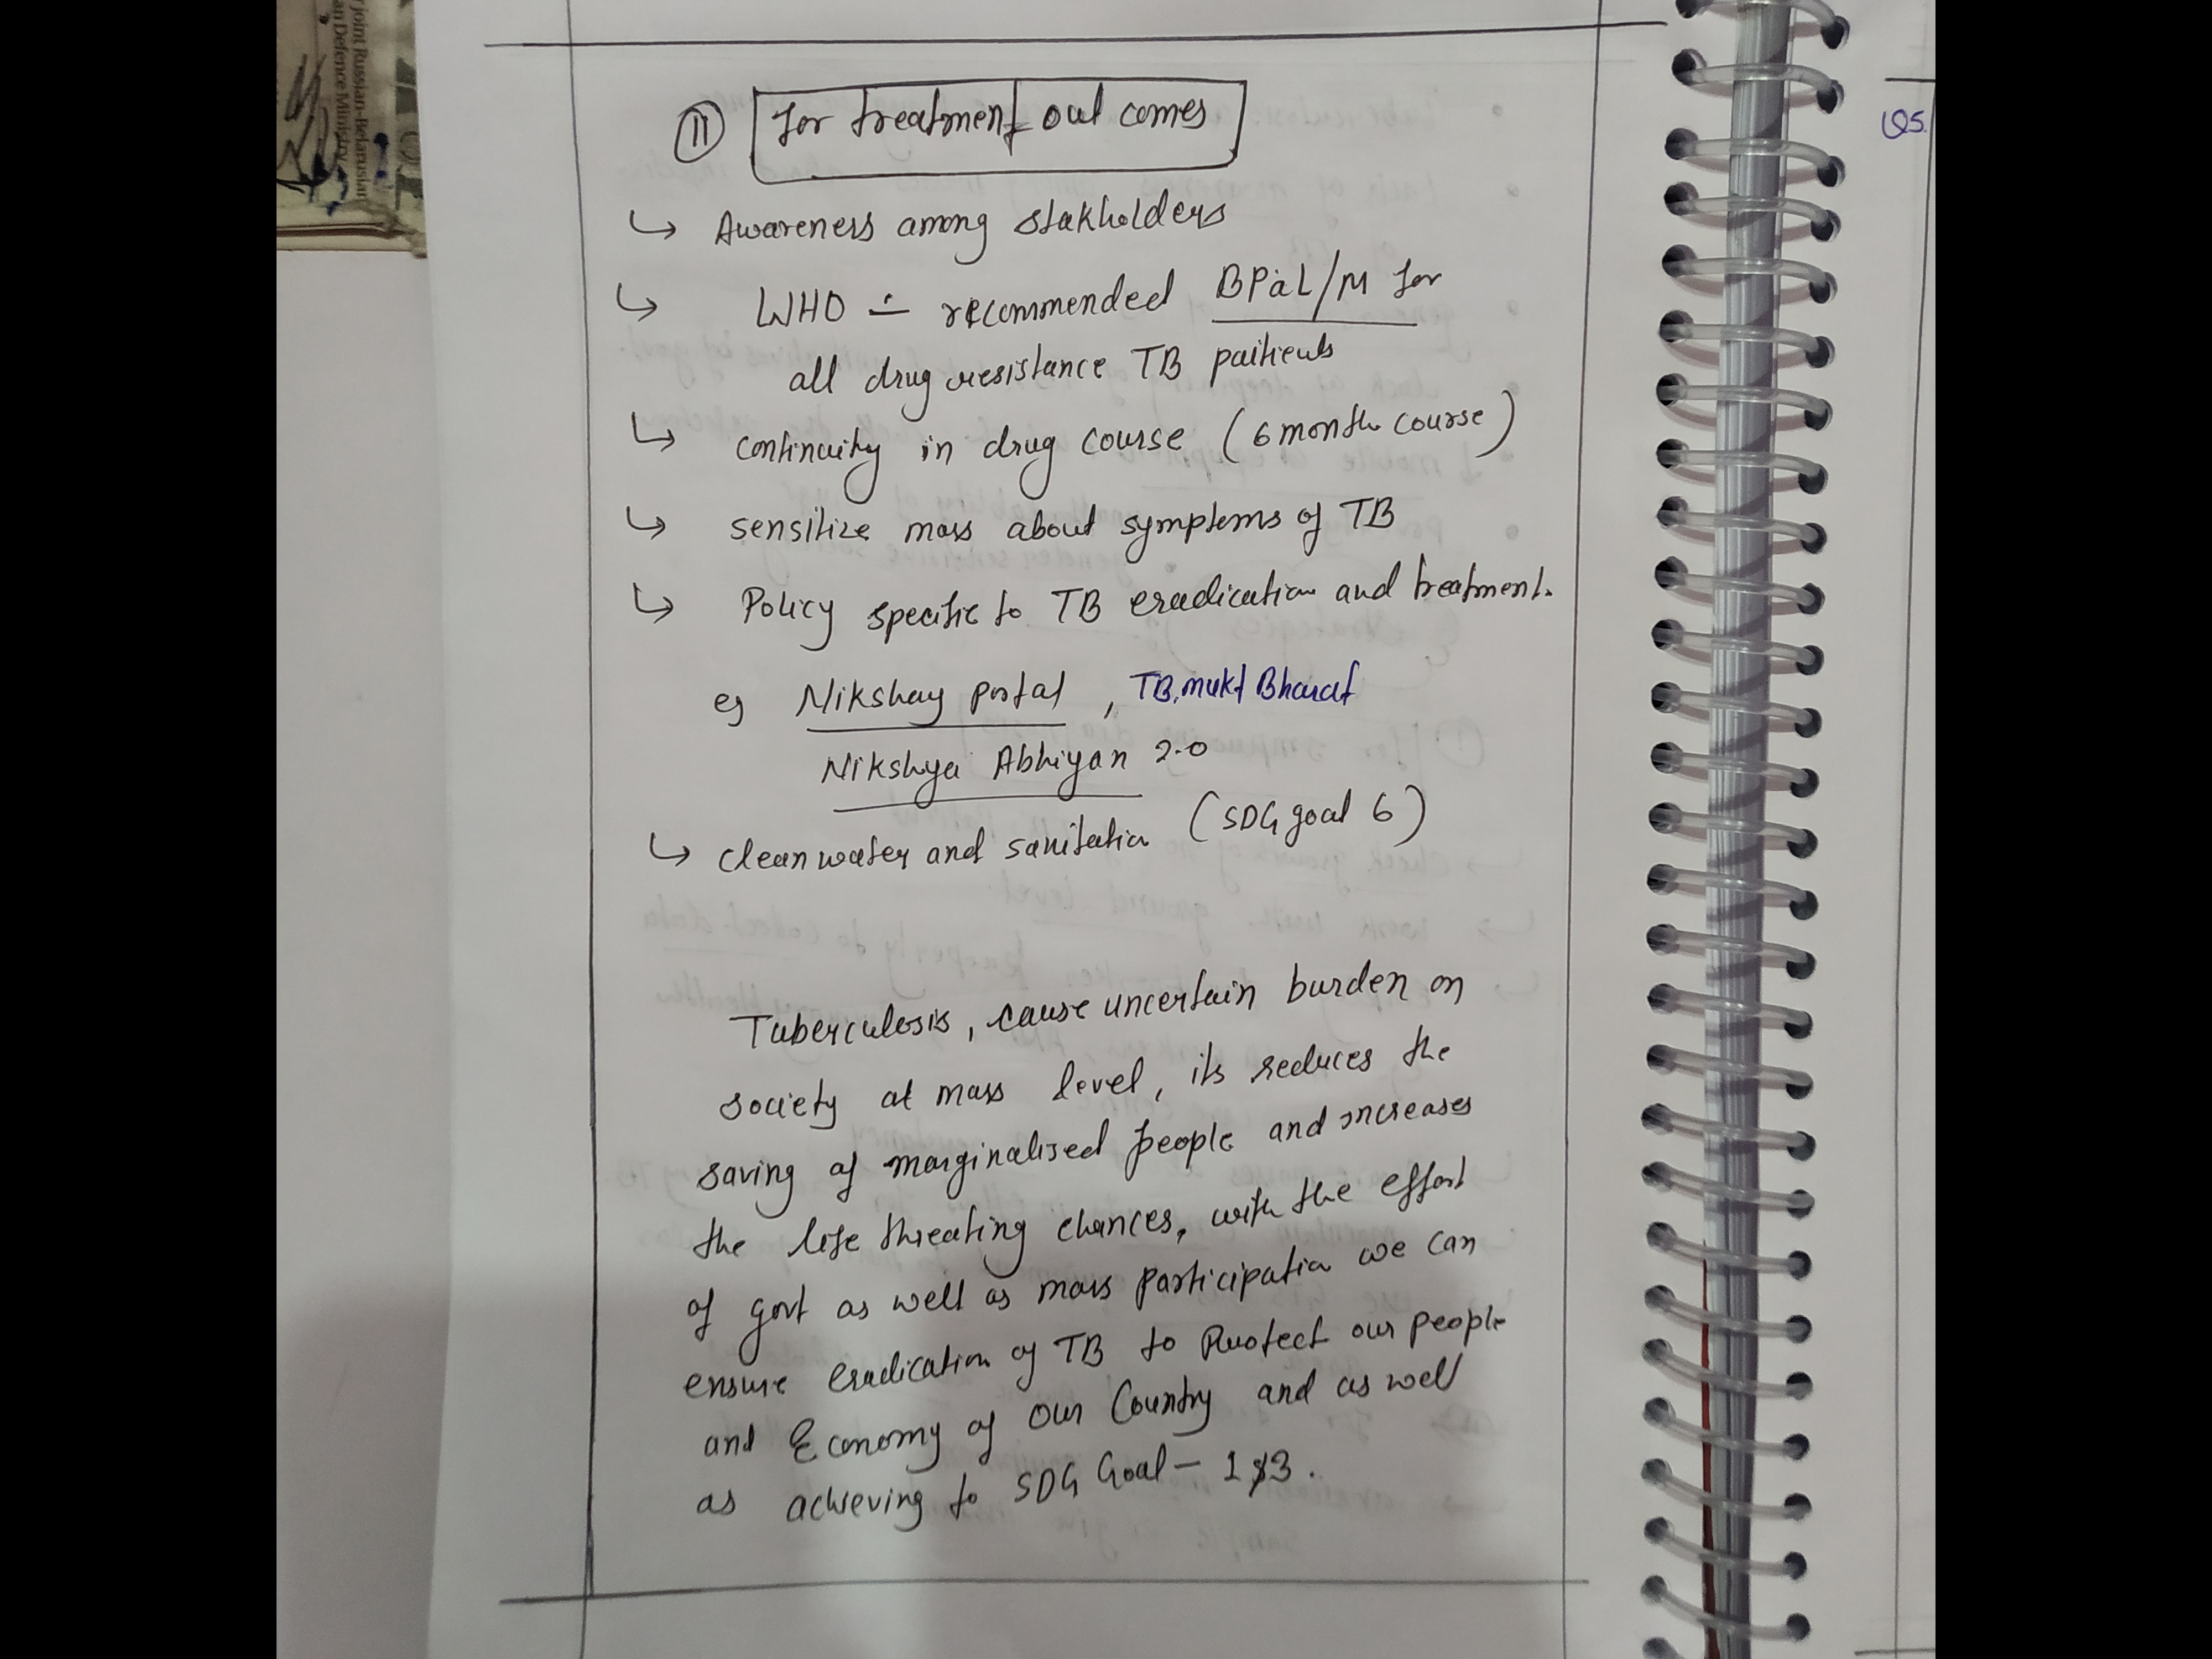 joint Russian-Belarusian
an Defence Ministry
Q5.
(II) for treatment out comes
↳ Awareness among stakholders
↳ WHO ∸ recommended BPaL/M for
all drug resistance TB paitients
↳ continuity in drug course (6 month course)
↳ sensitize mass about symptoms of TB
↳ Policy specific to TB eradication and treatment.
eg Nikshay portal, TB mukt Bharat
Nikshya Abhiyan 2.0
↳ clean water and sanitation (SDG goal 6)
Tuberculosis, cause uncertain burden on
society at mass level, its reduces the
saving of marginalised people and increases
the life threating chances, with the effort
of govt as well as mass participation we can
ensure eradication of TB to Protect our people
and Economy of our Country and as well
as achieving to SDG Goal - 1 & 3.